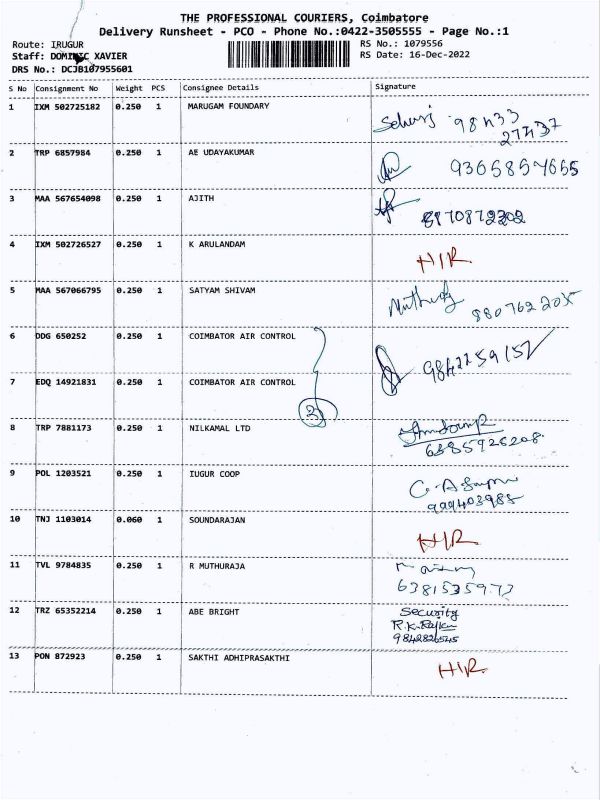 THE PROFESSIONAL COURIERS, Coimbatore
Delivery Runsheet - PCO - Phone No.:0422-3505555 - Page No.:1
Route: IRUGUR
RS No.: 1079556
Staff: DOMINIC XAVIER
RS Date: 16-Dec-2022
DRS No.: DCJB107955601
S No Consignment No Weight PCS Consignee Details Signature
1 IXM 502725182 0.250 1 MARUGAM FOUNDARY
2 TRP 6857984 0.250 1 AE UDAYAKUMAR
3 MAA 567654098 0.250 1 AJITH 8870872202
4 IXM 502726527 0.250 1 K ARULANDAM HIR
5 MAA 567066795 0.250 1 SATYAM SHIVAM
6 DDG 650252 0.250 1 COIMBATOR AIR CONTROL 9842259152
7 EDQ 14921831 0.250 1 COIMBATOR AIR CONTROL
3
8 TRP 7881173 0.250 1 NILKAMAL LTD
6385926208
9 POL 1203521 0.250 1 IUGUR COOP
10 TNJ 1103014 0.060 1 SOUNDARAJAN HIR
11 TVL 9784835 0.250 1 R MUTHURAJA
6381535973
12 TRZ 65352214 0.250 1 ABE BRIGHT Security
R.K. Rajku
9842826545
13 PON 872923 0.250 1 SAKTHI ADHIPRASAKTHI HIR